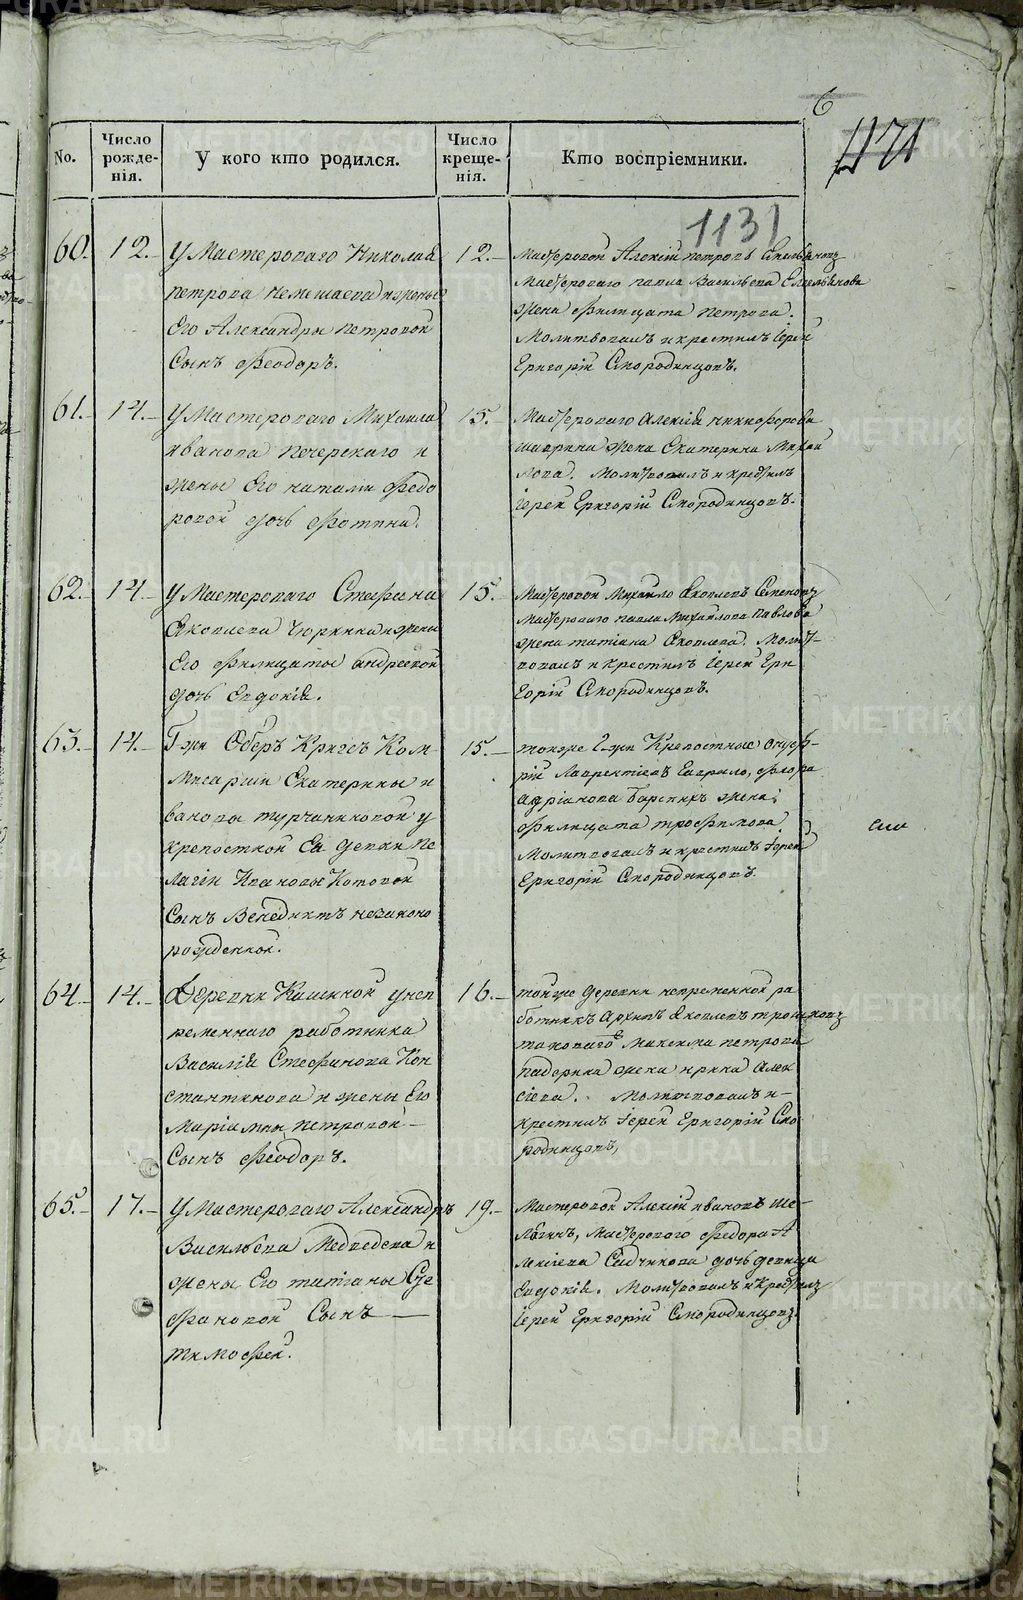 6
1131
No.
Число рожде-нія.
У кого кто родился.
Число креще-нія.
Кто воспріемники.
60.
12.
У Мастероваго Николая
петрова жены
Его Александры петровой
Сынъ Ѳеодоръ.
12.
Мастеровой Алексій петровъ
Мастероваго павла Васильева Емельянова
жена Филицата петрова.
Молитвовалъ и крестилъ Іерей
Григорій Смородинцовъ.
61.
14.
У Мастероваго Михаила
иванова печерскаго и
жены Его наталіи Ѳедо
ровой дочь Фотина.
15.
Мастероваго Алексія никифорова
жена Екатерина Михаи
лова. Молитвовалъ и крестилъ
Іерей Григорій Смородинцовъ.
62.
14.
У Мастероваго Стефана
Яковлева и жены
Его Филицаты андреевой
дочь Евдокія.
15.
Мастеровой Михайло Яковлевъ
Мастероваго павла Михайлова павлова
жена татіана Яковлева. Молит-
вовалъ и крестилъ Іерей Гри
горій Смородинцовъ.
63.
14.
Гжи Оберъ Кригсъ Ком-
мисарши Екатерины и
вановы турчаниновой у
крепостной Ея девки пе
лагіи Ивановы Котовой
Сынъ Венедиктъ незаконо
рожденной.
15.
тойже Гжи Крепостные онуф-
рій Лаврентіевъ Флора
адріанова жена
Филицата трофимова
Молитвовалъ и крестилъ Іерей
Григорій Смородинцовъ.
64
14.
Деревни Кашиной у неп
ременнаго работника
Василія Стефанова Кон
стантинова и жены Его
Маріамны петровой
Сынъ Ѳеодоръ.
16.
тойже деревни непременной ра
ботникъ Архипъ Яковлевъ
таковаго же Максима петрова
жена ирина Алек
сіева. Молитвовалъ и
крестилъ Іерей Григорій Смо
родинцовъ,
65.
17.
У Мастероваго Александра
Васильева Медведева и
жены Его татіаны Сте
фановой Сынъ
тимоѳей.
19.
Мастеровой Алексій ивановъ
Мастероваго Ѳедора А
лексіева дочь девица
Евдокія. Молитвовалъ и крестилъ
Іерей Григорій Смородинцовъ.
METRIKI.GASO-URAL.RU